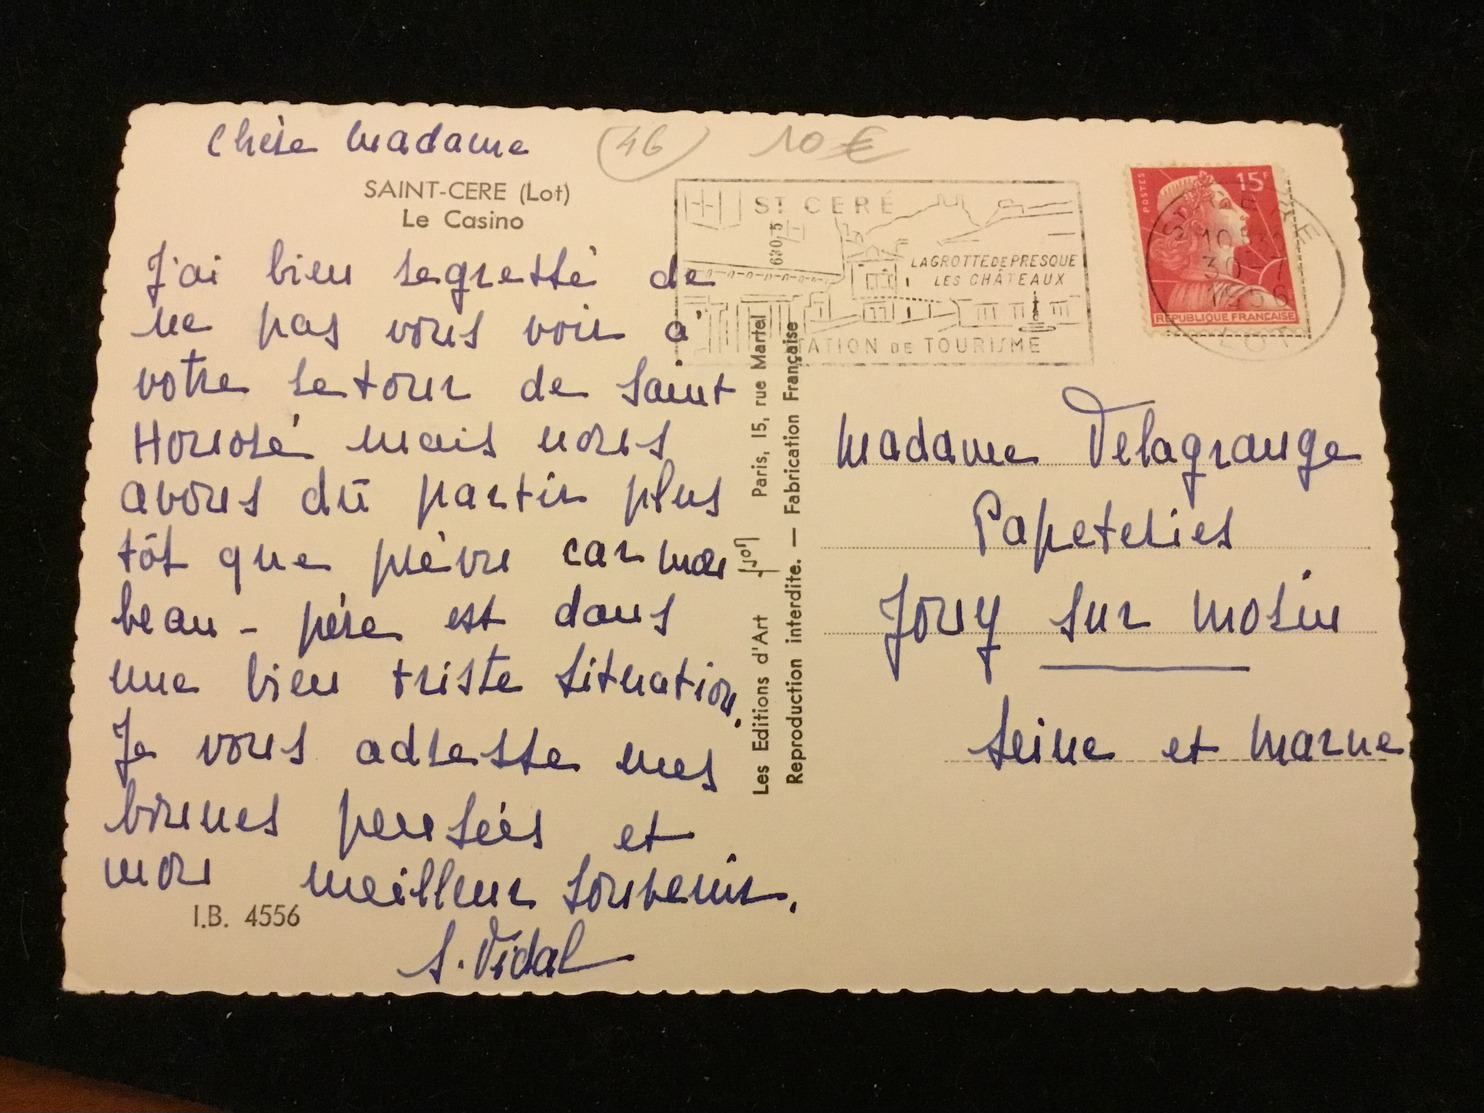 Chère Madame
(46) 10 €
SAINT-CERE (Lot)
Le Casino
J'ai bien regretté de
ne pas vous voir à
votre retour de Saint
Honoré mais nous
avons dû partir plus
tôt que prévu car mon
beau-père est dans
une bien triste situation.
Je vous adresse mes
bonnes pensées et
mon meilleur souvenir.
S. Vidal
I.B. 4556
Les Editions d'Art Yvon Paris, 15, rue Martel
Reproduction interdite. — Fabrication Française
ST CERÉ
LA GROTTE DE PRESQUE
LES CHÂTEAUX
STATION DE TOURISME
POSTES
15F
REPUBLIQUE FRANÇAISE
ST CERE
30-7
1956
LOT
Madame Delagrange
Papeteries
Jouy sur Morin
Seine et Marne